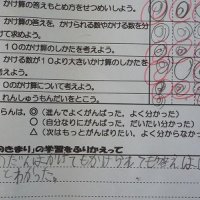 かけ算の答えもとめ方をせつめいしよう。
算の答えを、かけられる数やかける数を
けて求めよう。
10のかけ算のしかたを考えよう。
かける数が10より大きいかけ算のしかた
考えよう。
0のかけ算について考えよう。
れんしゅうもんだいをとこう。
らんは、◎（進んでよくがんばった、よく分かった）
○（自分なりにがんばった、だいたい分かった）
△（次はもっとがんばりたい、よく分からなかっ
きまり」の学習をふりかえって
はかけてもかけられても答えは
とわかった。